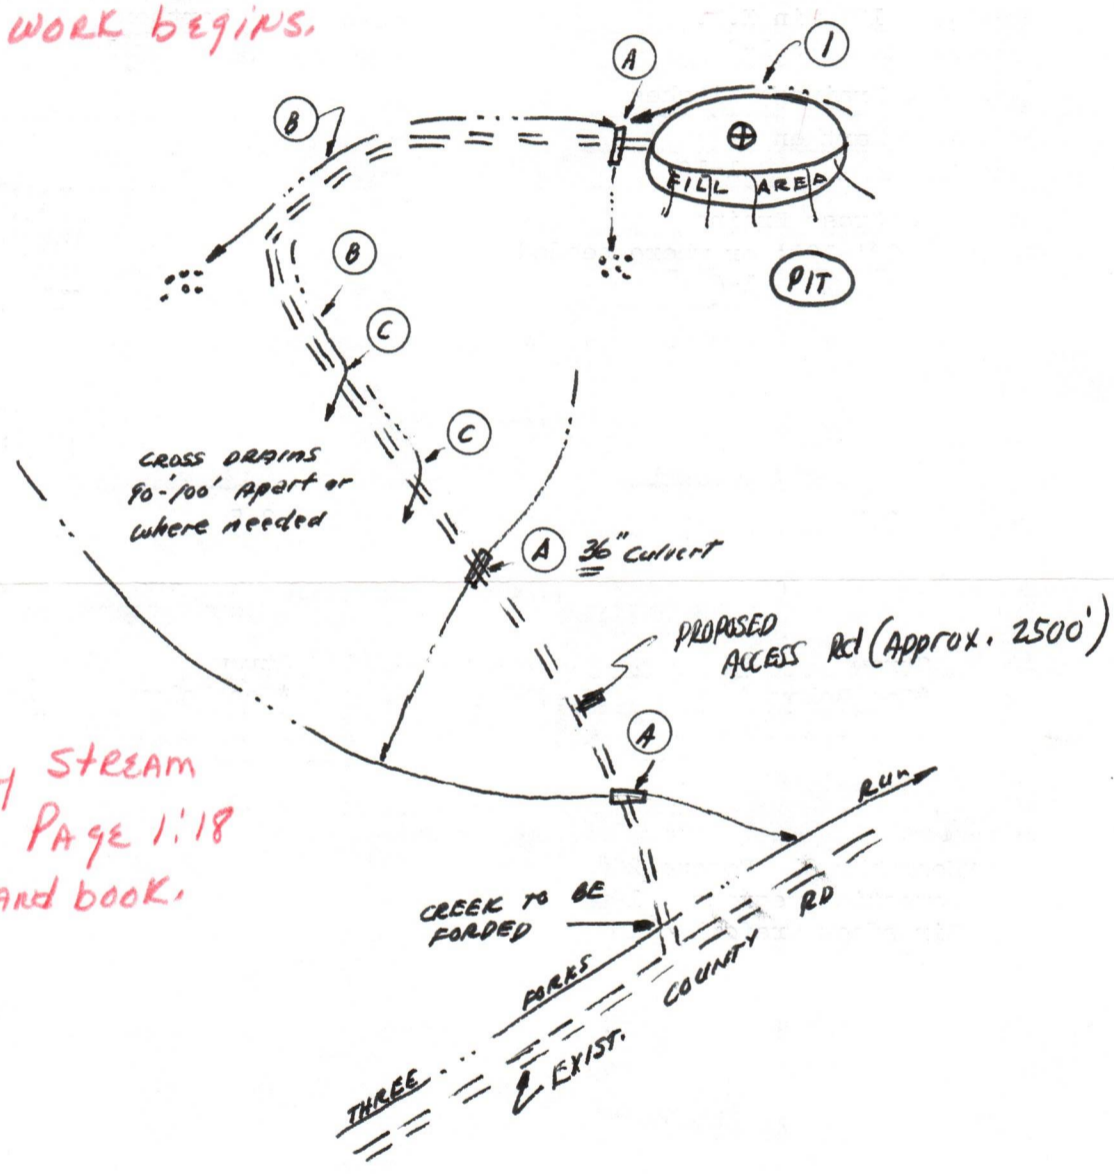 WORK begins.
A
1
B
FILL AREA
B
PIT
C
C
CROSS DRAINS
90-'100' Apart or
where needed
A 36" Culvert
PROPOSED
ACCESS Rd (Approx. 2500')
A
STREAM
PAge 1:18
book.
RUN
CREEK TO BE
FORDED
RD
COUNTY
FORKS
EXIST.
THREE